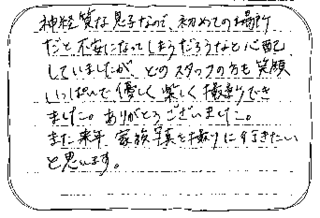 神経質な息子なので、初めての場所
だと不安になってしまうだろうなと心配
していましたが、どのスタッフの方も笑顔
いっぱいで優しく楽しく撮影でき
ました。ありがとうございました。
また来年 家族写真を撮りに行きたい
と思います。